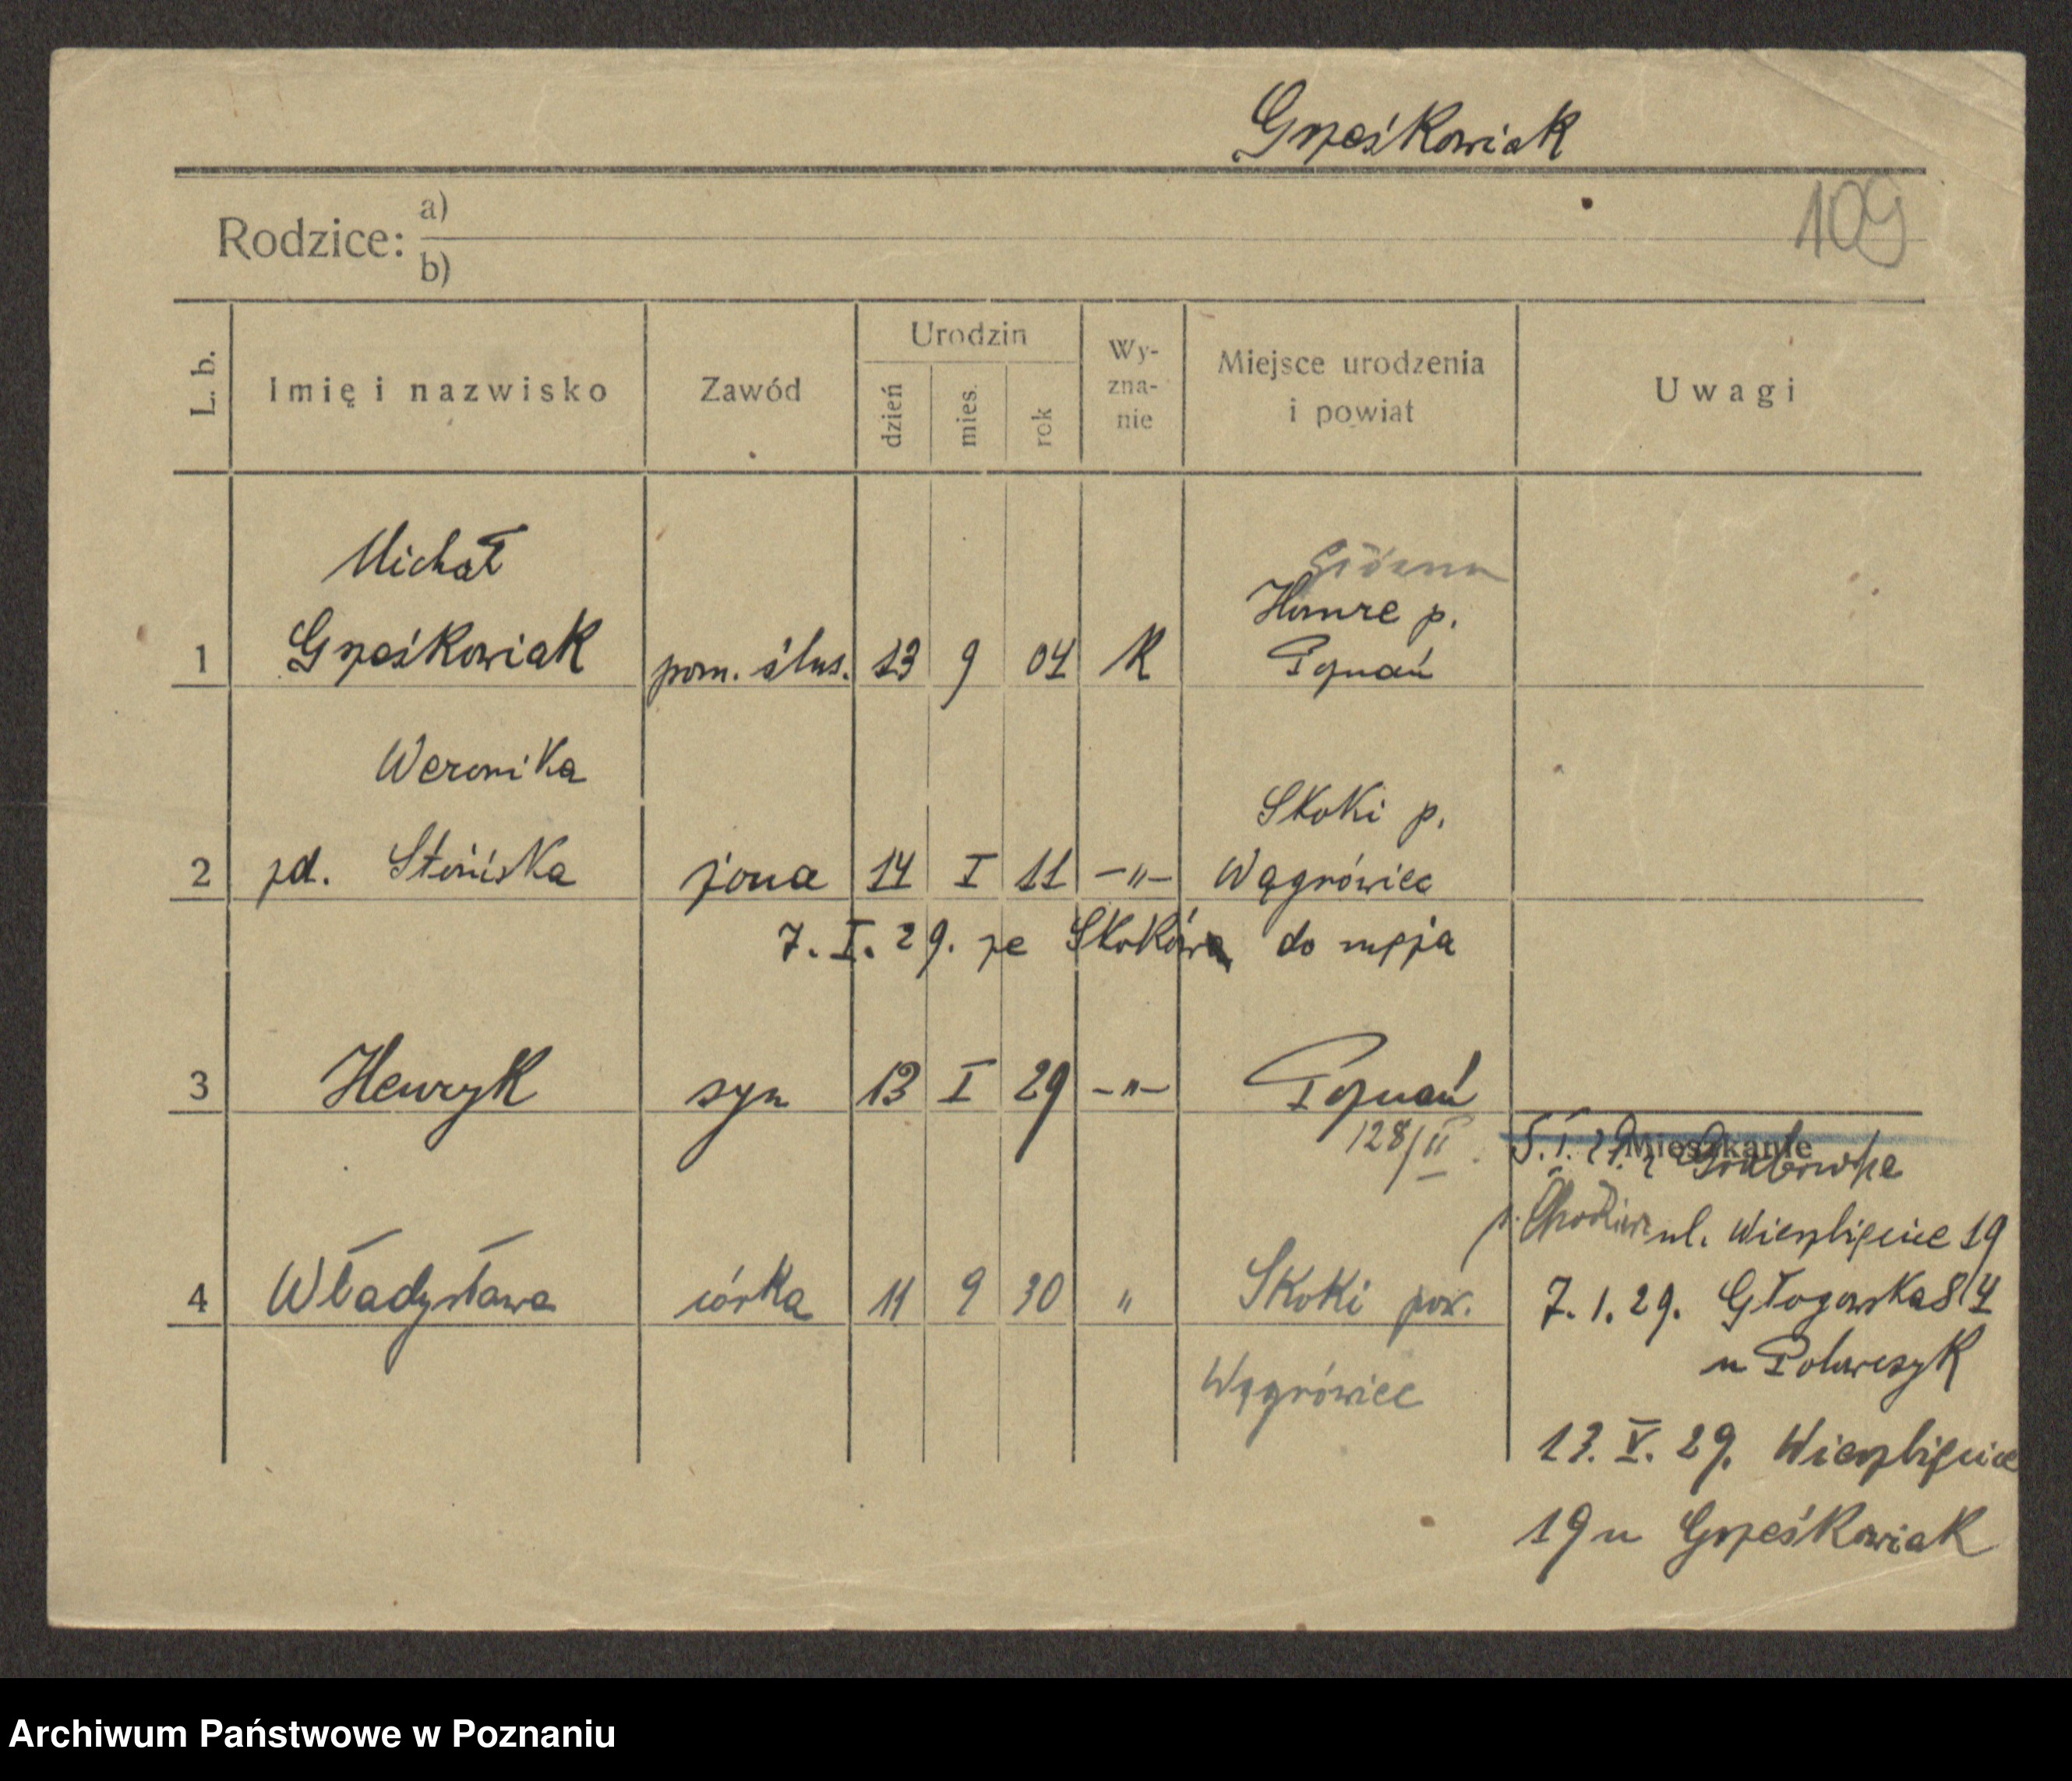 Grześkowiak
109
Rodzice: a)
b)
L. b. Imię i nazwisko Zawód Urodzin dzień mies. rok Wy-zna-nie Miejsce urodzenia i powiat Uwagi
Michał
Główna
Grześkowiak
1 pom. ślus. 13 9 04 K
p.
Poznań
Weronika
Skoki p.
2 zd. żona 14 I 11 -"- Wągrówiec
7. I. 29. ze Skoków do męża
3 Henryk syn 13 I 29 -"- Poznań
128/II
Mieszkanie
5. I. 29. z
ul. Wierzbięcice 19
4 Władysława córka 11 9 30 " Skoki pow.
Wągrówiec
7. 1. 29. Głogowska 84
u
13. V. 29. Wierzbięcice
19 u Grześkowiak
Archiwum Państwowe w Poznaniu